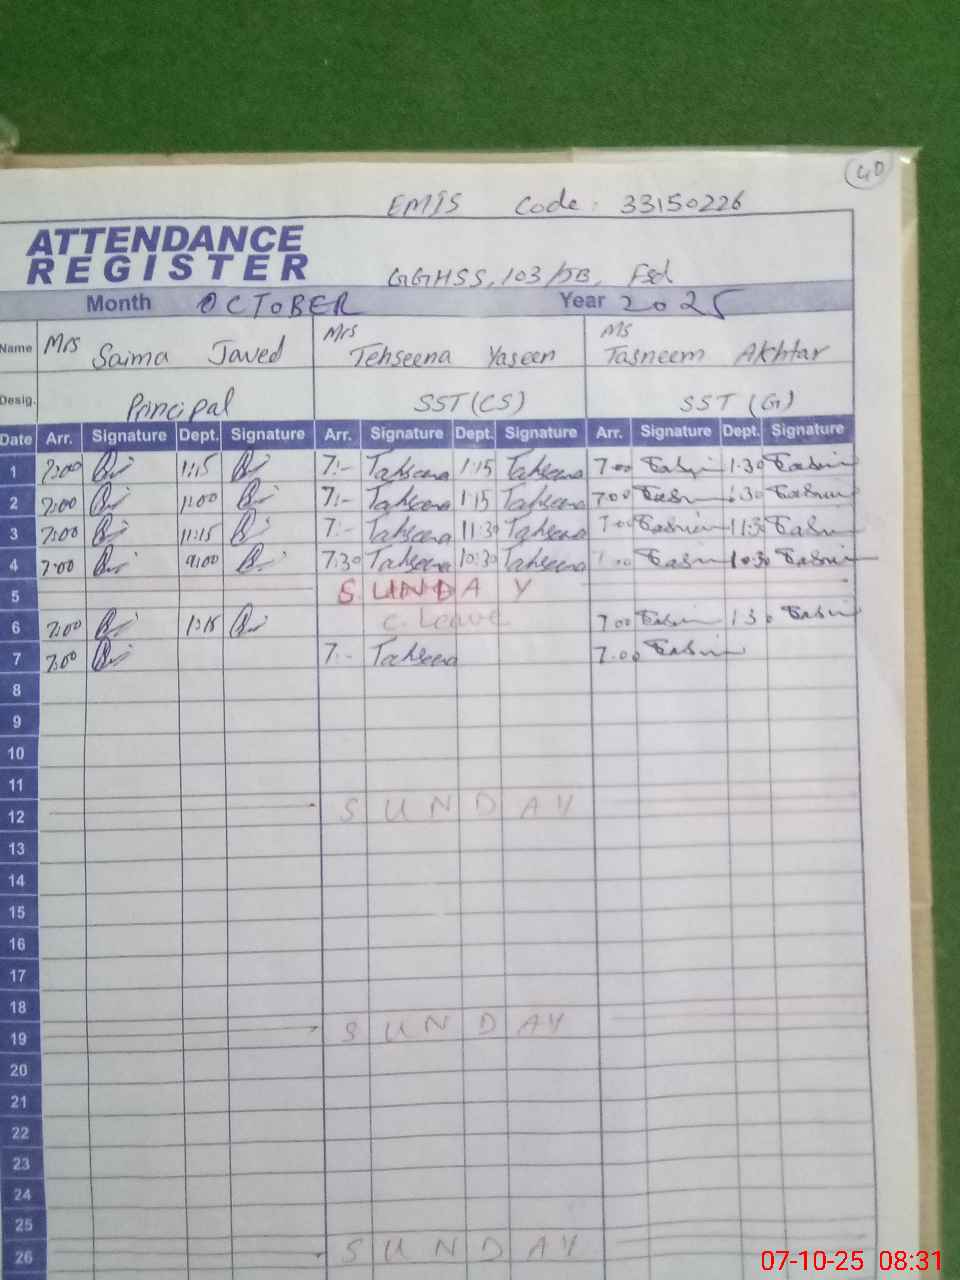 40
EMIS Code: 33150226
ATTENDANCE
REGISTER
GGHSS, 103/JB, Fsd
Month OCTOBER Year 2025
Name Mrs Saima Javed Mrs Tehseena Yaseen Ms Tasneem Akhtar
Desig. Principal SST (CS) SST (G)
Date Arr. Signature Dept. Signature Arr. Signature Dept. Signature Arr. Signature Dept. Signature
1 7:00 1:15 7:- Tahseena 1:15 Tahseena 7.00 1.30
2 7:00 1:00 7:- Tahseena 1:15 Tahseena 7.00 1.30
3 7:00 11:15 7:- Tahseena 11:30 Tahseena 7.00 11:30
4 7:00 9:00 7:30 Tahseena 10:30 Tahseena 10:30
5 SUNDAY
6 7:00 1:15 C. Leave 7.00 1.30
7 7:00 7:- Tahseena 7.00
8
9
10
11
12 SUNDAY
13
14
15
16
17
18
19 SUNDAY
20
21
22
23
24
25
26 SUNDAY
07-10-25 08:31